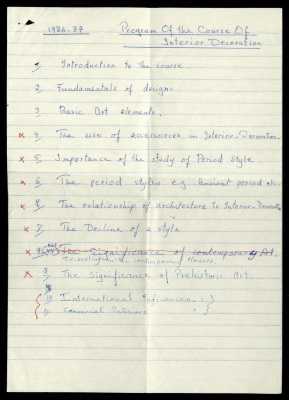 1986-87 Program Of the Course Of
Interior Decoration
Introduction to the course
2. Fundamentals of design
3 Basic Art elements.
x 4 The use of accessories in Interior-Decoration.
x 5. Importance of the study of Period style
x 6 The period styles e.g Ancient period etc.
x 7 The relationship of architecture to Interior-Decoration
x 8. The Decline of a style
x 9 The Significance of Contemporary Art.
Decorating in the contemporary Manner.
x 9. The Significance of Prehistoric Art.
10 International Influences
11 Commercial Interiors